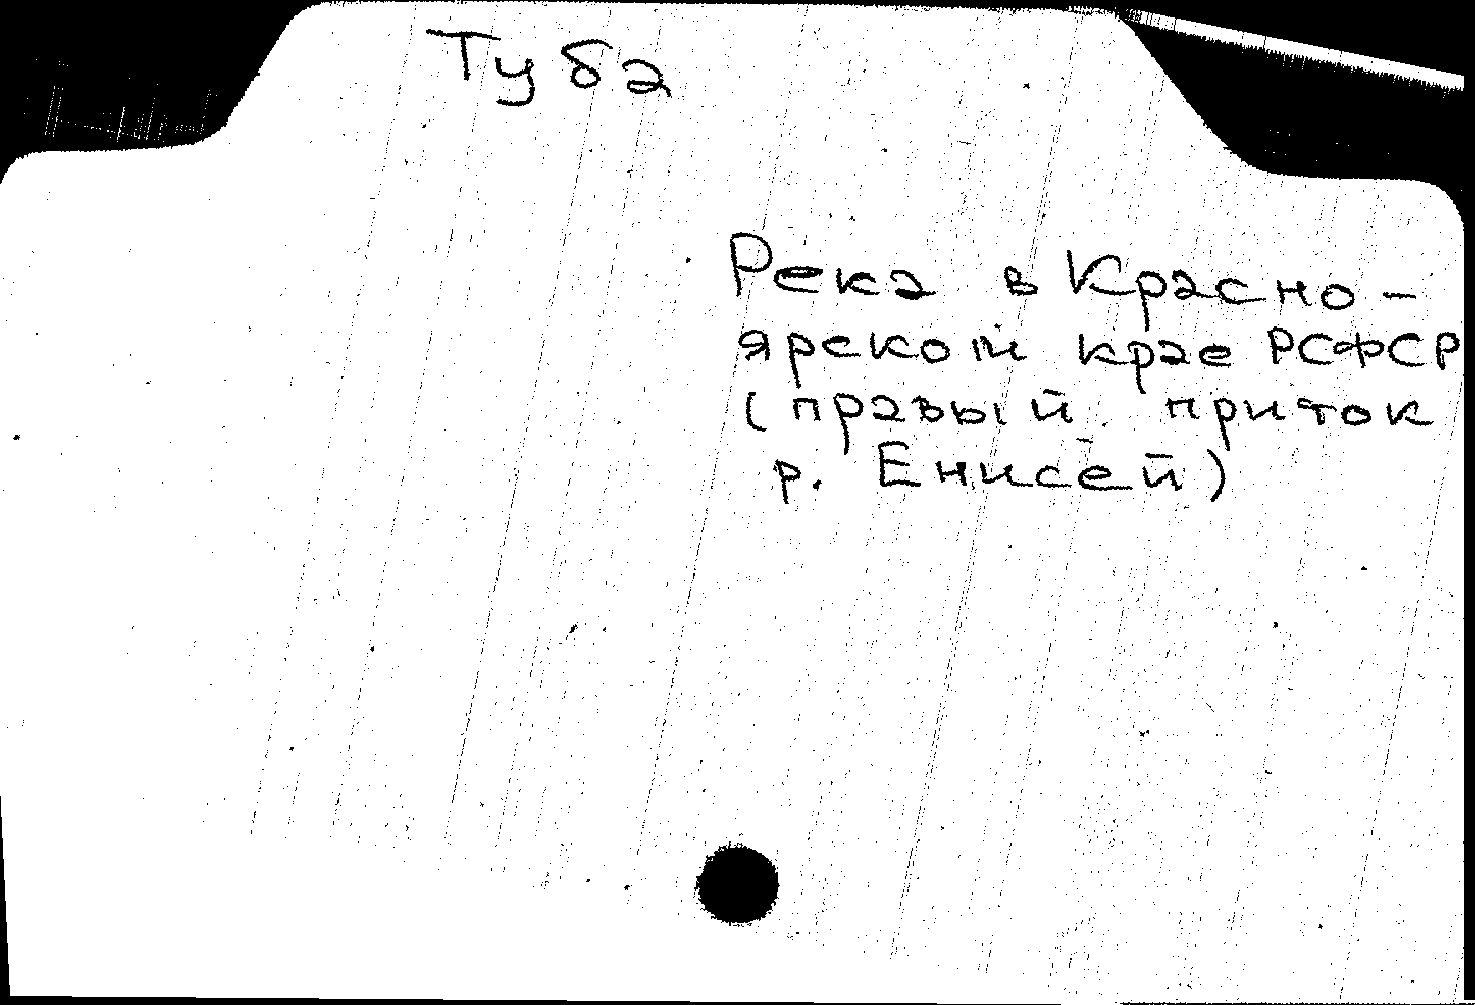 Туба
Река в Красно-
ярской крае РСФСР
(правый приток
р. Енисей)